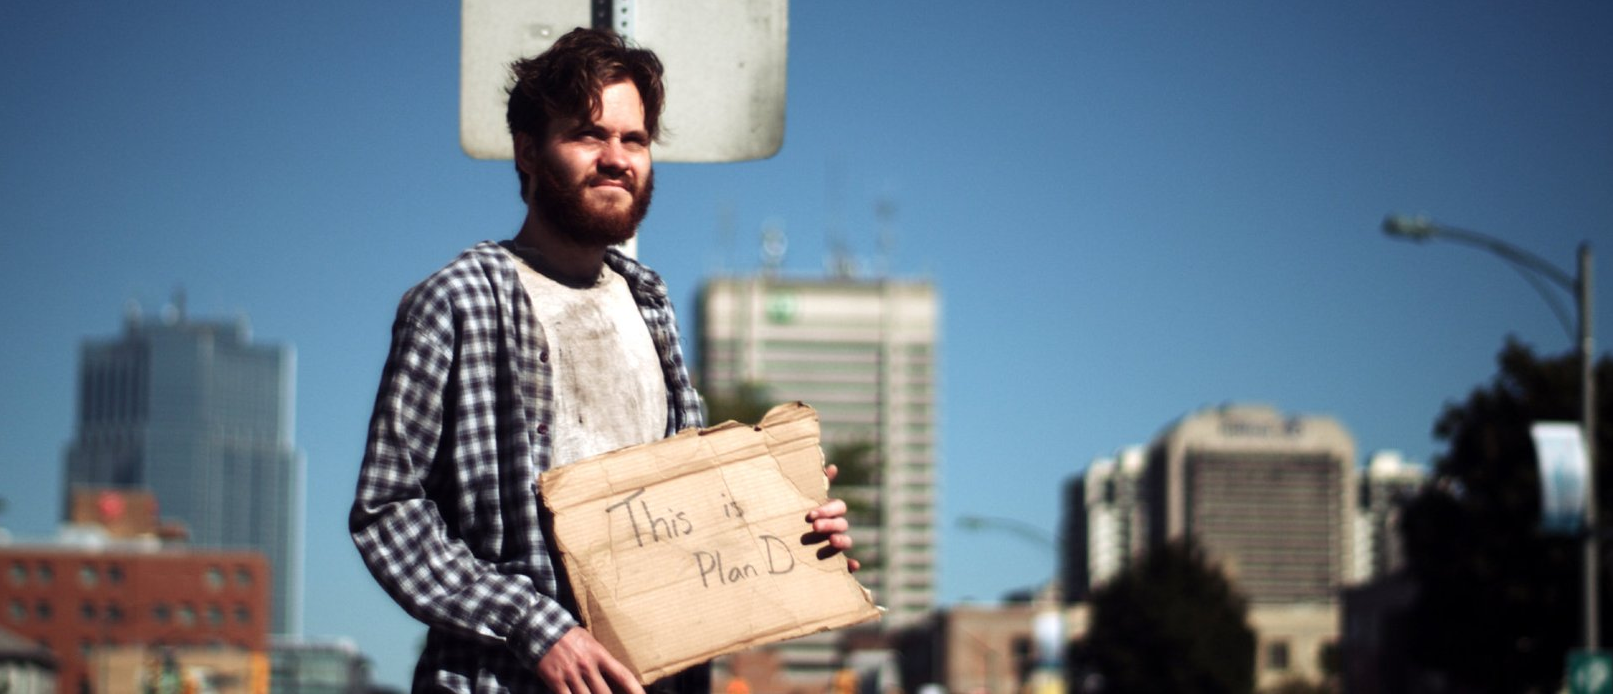 This is
Plan D